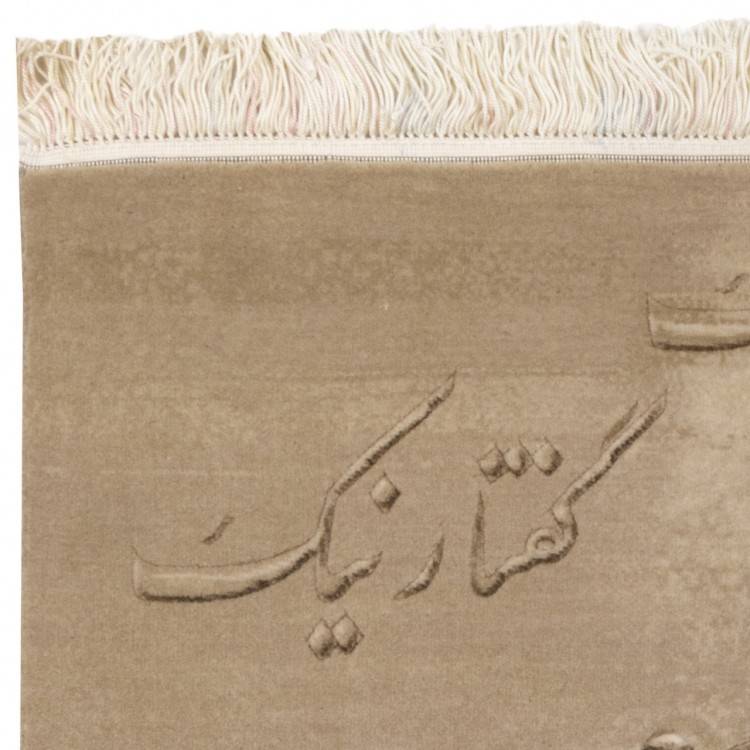 گفتار نیک